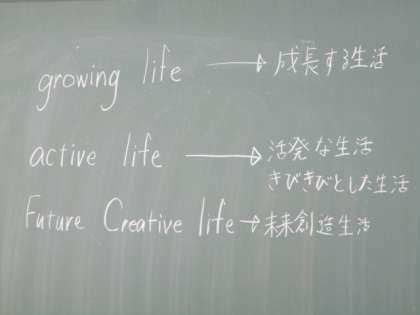 growing life → 成長する生活
active life → 活発な生活
きびきびとした生活
Future Creative life → 未来創造生活